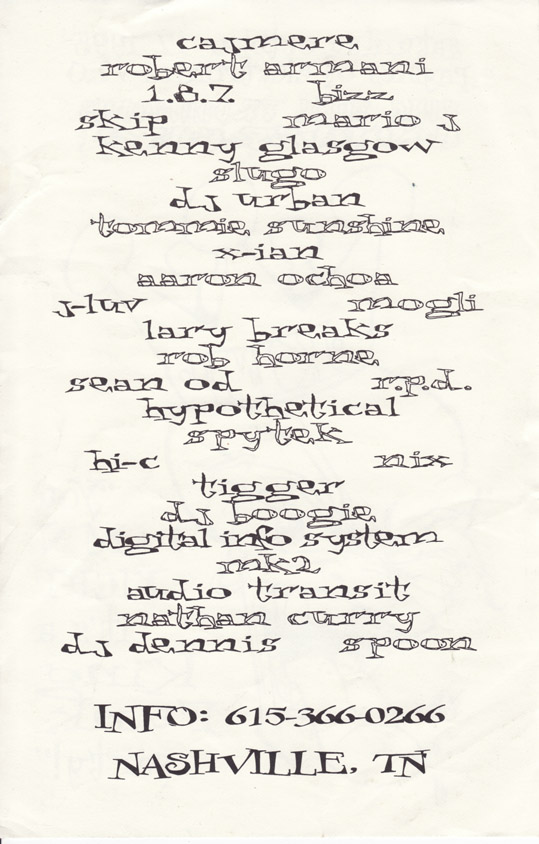 cajmere
robert armani
1.8.7. bizz
skip mario j
kenny glasgow
slugo
dj urban
tommie sunshine
x-ian
aaron ochoa
j-luv mogli
lary breaks
rob horne
sean od r.p.d.
hypothetical
spytek
hi-c nix
tigger
dj boogie
digital info system
mk2
audio transit
nathan curry
dj dennis spoon
INFO: 615-366-0266
NASHVILLE, TN